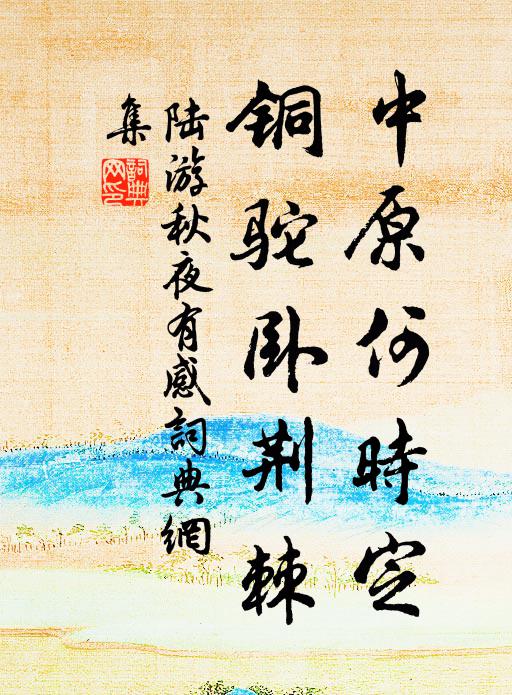 中原何時定
铜驼卧荆棘
陆游秋夜有感詞典網
集
詞典
网印